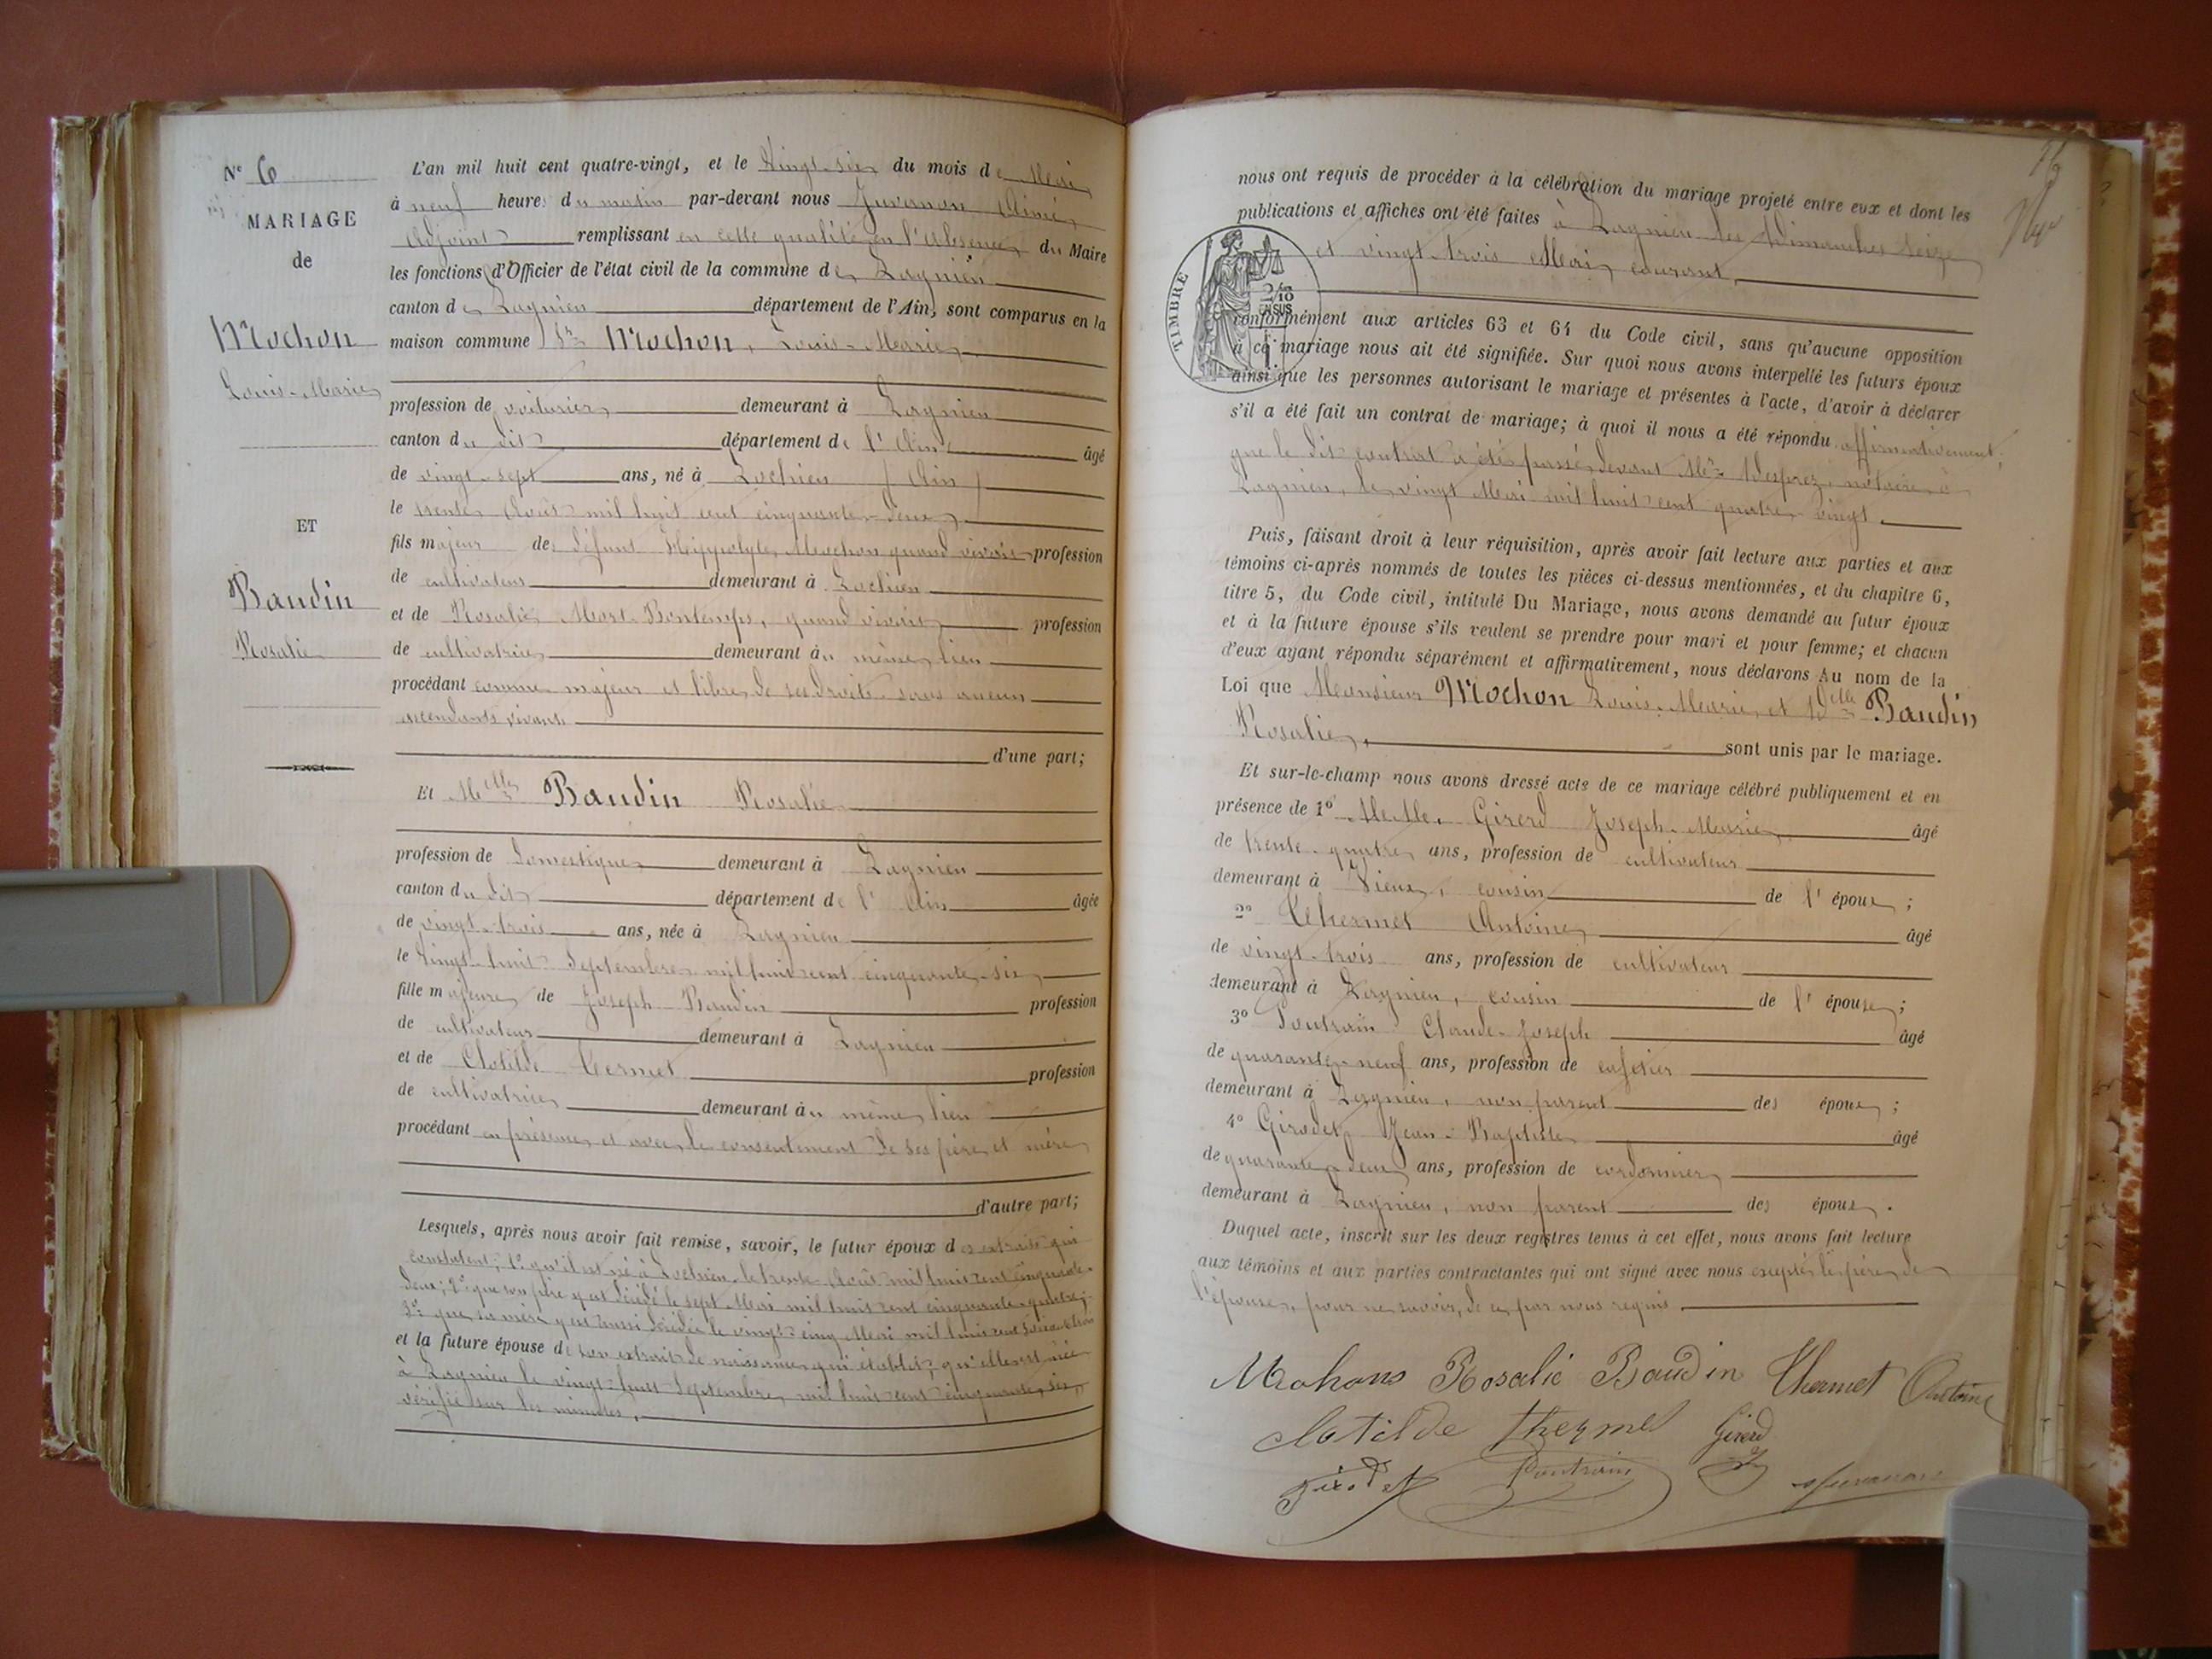 N° 6
MARIAGE
de
Mochon
Louis-Marie
ET
Baudin
Rosalie
L'an mil huit cent quatre-vingt, et le Vingt-six du mois de Mai
à neuf heures du matin par-devant nous Juvanon Aimé
adjoint remplissant en cette qualité, en l'absence du Maire
les fonctions d'Officier de l'état civil de la commune de Lagnieu
canton de Lagnieu département de l'Ain, sont comparus en la
maison commune Sr Mochon, Louis-Marie
profession de voiturier demeurant à Lagnieu
canton du dit département de l'Ain âgé
de vingt-sept ans, né à Lochieu (Ain)
le trente Août mil huit cent cinquante-deux
fils majeur de défunt Hippolyte Mochon quand vivait profession
de cultivateur demeurant à Lochieu
et de Rosalie Mort-Bontemps, quand vivait profession
de cultivatrice demeurant au même lieu
procédant comme majeur et libre de ses droits sans aucun
ascendants vivants
d'une part;
Et Melle Baudin Rosalie
profession de domestique demeurant à Lagnieu
canton du dit département de l'Ain âgée
de vingt-trois ans, née à Lagnieu
le vingt-huit Septembre mil huit cent cinquante-six
fille majeure de Joseph Baudin profession
de cultivateur demeurant à Lagnieu
et de Clotilde Termet profession
de cultivatrice demeurant au même lieu
procédant en présence et avec le consentement de ses père et mère
d'autre part;
Lesquels, après nous avoir fait remise, savoir, le futur époux des extraits qui
constatent; 1° qu'il est né à Lochieu le trente Août mil huit cent cinquante-
deux; 2° que son père y est décédé le sept Mai mil huit cent cinquante-quatre;
3° que sa mère y est aussi décédée le vingt-cinq Mai mil huit cent
et la future épouse de son extrait de naissance qui établit, qu'elle est née
à Lagnieu le vingt-huit Septembre mil huit cent cinquante-six,
vérifié sur les minutes.
nous ont requis de procéder à la célébration du mariage projeté entre eux et dont les
publications et affiches ont été faites à Lagnieu les Dimanches seize
et vingt trois Mai courant
TIMBRE
2/10 EN SUS
conformément aux articles 63 et 64 du Code civil, sans qu'aucune opposition
à ce mariage nous ait été signifiée. Sur quoi nous avons interpellé les futurs époux
ainsi que les personnes autorisant le mariage et présentes à l'acte, d'avoir à déclarer
s'il a été fait un contrat de mariage; à quoi il nous a été répondu affirmativement;
que le dit contrat a été passé devant Me Desprez, notaire à
Lagnieu, le vingt Mai mil huit cent quatre-vingt.
Puis, faisant droit à leur réquisition, après avoir fait lecture aux parties et aux
témoins ci-après nommés de toutes les pièces ci-dessus mentionnées, et du chapitre 6,
titre 5, du Code civil, intitulé Du Mariage, nous avons demandé au futur époux
et à la future épouse s'ils veulent se prendre pour mari et pour femme; et chacun
d'eux ayant répondu séparément et affirmativement, nous déclarons Au nom de la
Loi que Monsieur Mochon Louis-Marie, et Delle Baudin
Rosalie, sont unis par le mariage.
Et sur-le-champ nous avons dressé acte de ce mariage célébré publiquement et en
présence de 1° MM. Girerd Joseph-Marie âgé
de trente-quatre ans, profession de cultivateur
demeurant à Vieux, cousin de l'époux;
2° Thermet Antoine âgé
de vingt-trois ans, profession de cultivateur
demeurant à Lagnieu, cousin de l'épouse;
3° Poutrain Claude-Joseph âgé
de quarante-neuf ans, profession de cafetier
demeurant à Lagnieu, non parent des époux;
4° Girodet Jean-Baptiste âgé
de quarante-deux ans, profession de cordonnier
demeurant à Lagnieu, non parent des époux.
Duquel acte, inscrit sur les deux registres tenus à cet effet, nous avons fait lecture
aux témoins et aux parties contractantes qui ont signé avec nous excepté le père de
l'épouse, pour ne savoir, de ce par nous requis.
Mohons Rosalie Baudin Thermet Antoine
Clotilde thermet Girerd
Girodet Poutrain Juvanon